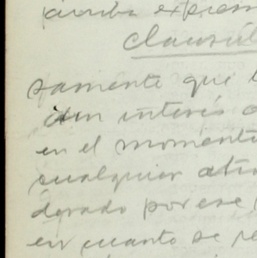 arriba expresa
Clausul
samente que l
sin interés a
en el momento
cualquier atra
dorado por ese
en cuanto se re